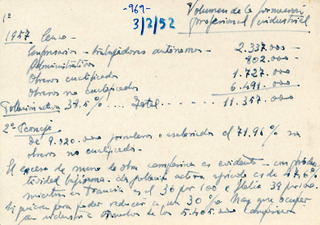 1º
-969-
3/2/52
Volumen de la formación
profesional industrial
1957 Censo
Empresarios - trabajadores autónomos - 2.337.000 -
Administrativos 802.000 -
Obreros cualificados 1.727.000 -
Obreros no cualificados 6.491.000 -
Población activa 38.6% .... Total ... 11.357.000 -
2º Consejo
De 9.020.000 jornaleros o asalariados el 71.96% son
obreros no cualificados.
El exceso de mano de obra campesina es evidente - con produc
tividad bajísima - la población activa agrícola es de 47.6%
mientras en Francia es el 36 por 100 e Italia 39 por 100.
para poder reducir a un 30% hay que ocupar
en industria a de los 5.405.000 campesinos